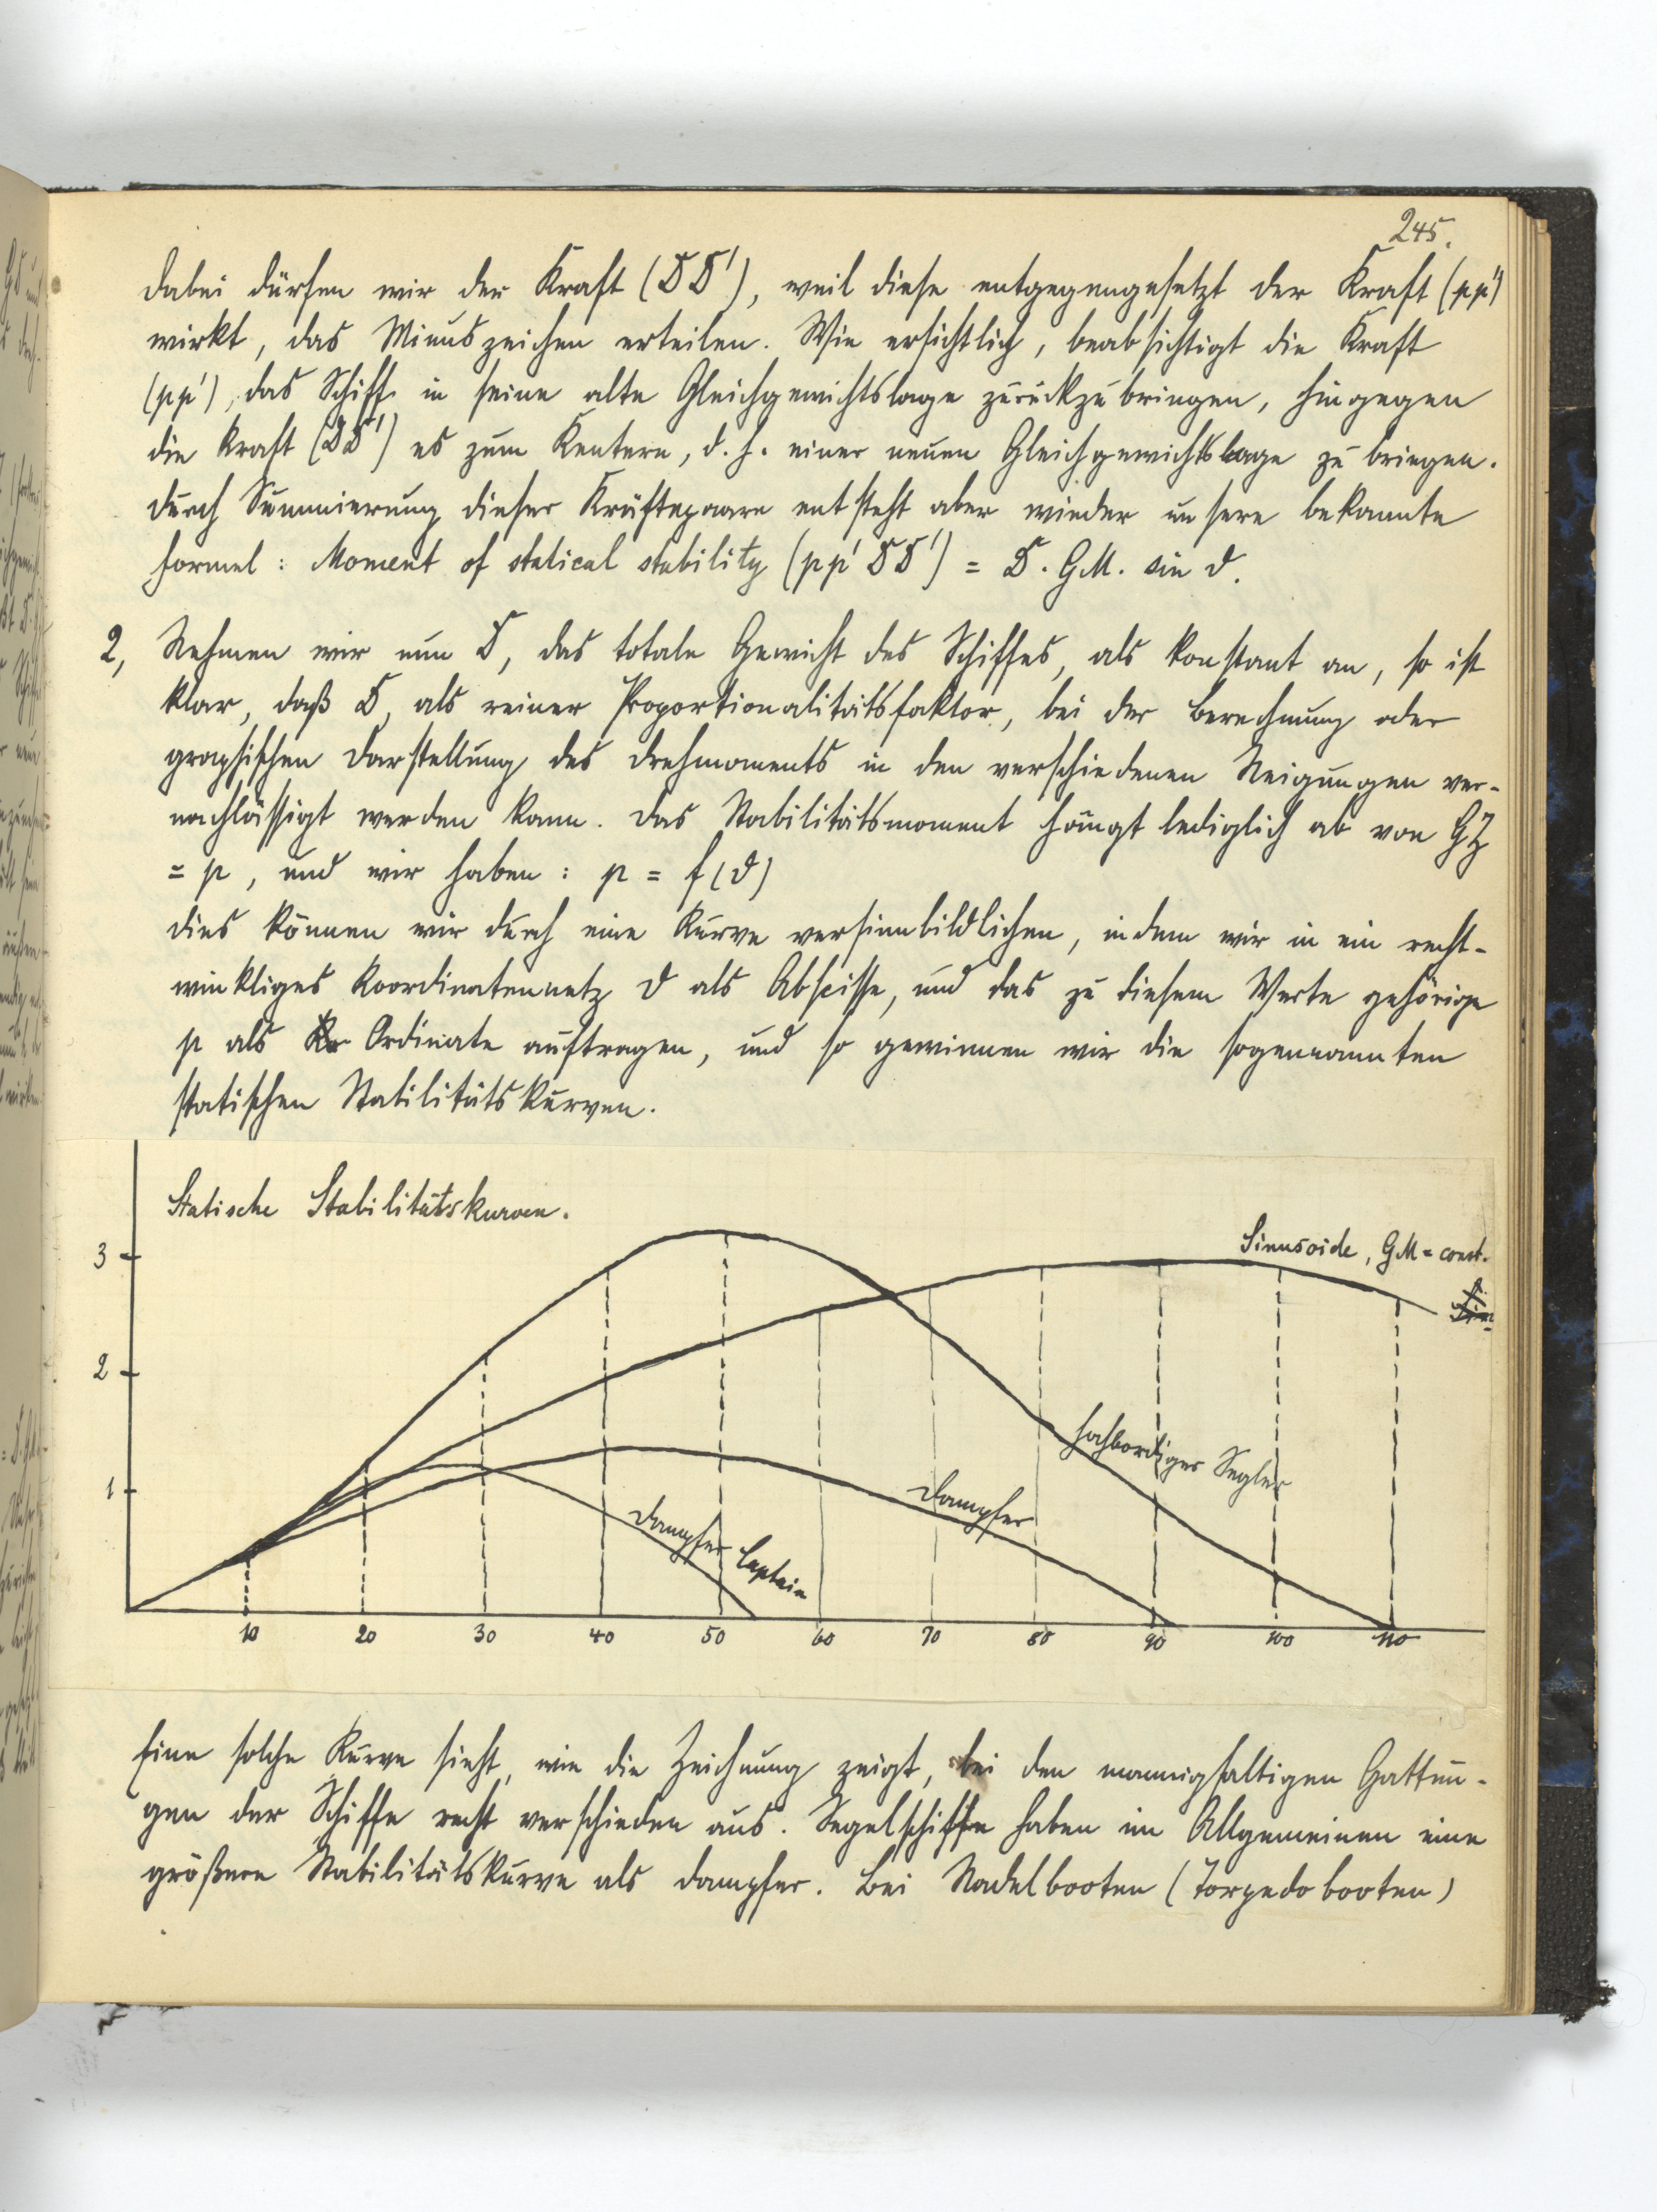 245.
Dabei dürfen wir der Kraft (DD'), weil diese entgegengesetzt der Kraft (pp')
wirkt, das Minuszeichen erteilen. Wie ersichtlich, beabsichtigt die Kraft
(pp'), das Schiff in seine alte Gleichgewichtslage zurückzubringen, hingegen
die Kraft (DD') es zum Kentern, d. h. einer neuen Gleichgewichtslage zu bringen.
Durch Summierung dieser Kräftepaare entsteht aber wieder unsere bekannte
Formel: Moment of statical stability (pp' DD') = D. GM. sin ϑ.
2, Nehmen wir nun D, das totale Gewicht des Schiffes, als konstant an, so ist
klar, daß D, als reiner Proportionalitätsfaktor, bei der Berechnung oder
graphischen Darstellung des Drehmoments in den verschiedenen Neigungen ver-
nachlässigt werden kann. Das Stabilitätsmoment hängt lediglich ab von GZ
= p, und wir haben: p = f(ϑ)
Dies können wir durch eine Kurve versinnbildlichen, indem wir in ein recht-
winkliges Koordinatennetz ϑ als Abscisse, und das zu diesem Werte gehörige
p als Ordinate auftragen, und so gewinnen wir die sogenannten
statischen Stabilitätskurven.
Statische Stabilitätskurven.
Sinusoide, GM = const.
3
2
1
hochbordiger Segler
Dampfer
Dampfer Captain
10 20 30 40 50 60 70 80 90 100 110
Eine solche Kurve sieht, wie die Zeichnung zeigt, bei den mannigfaltigen Gattun-
gen der Schiffe recht verschieden aus. Segelschiffe haben im Allgemeinen eine
größere Stabilitätskurve als Dampfer. Bei Nadelbooten (Torpedobooten)